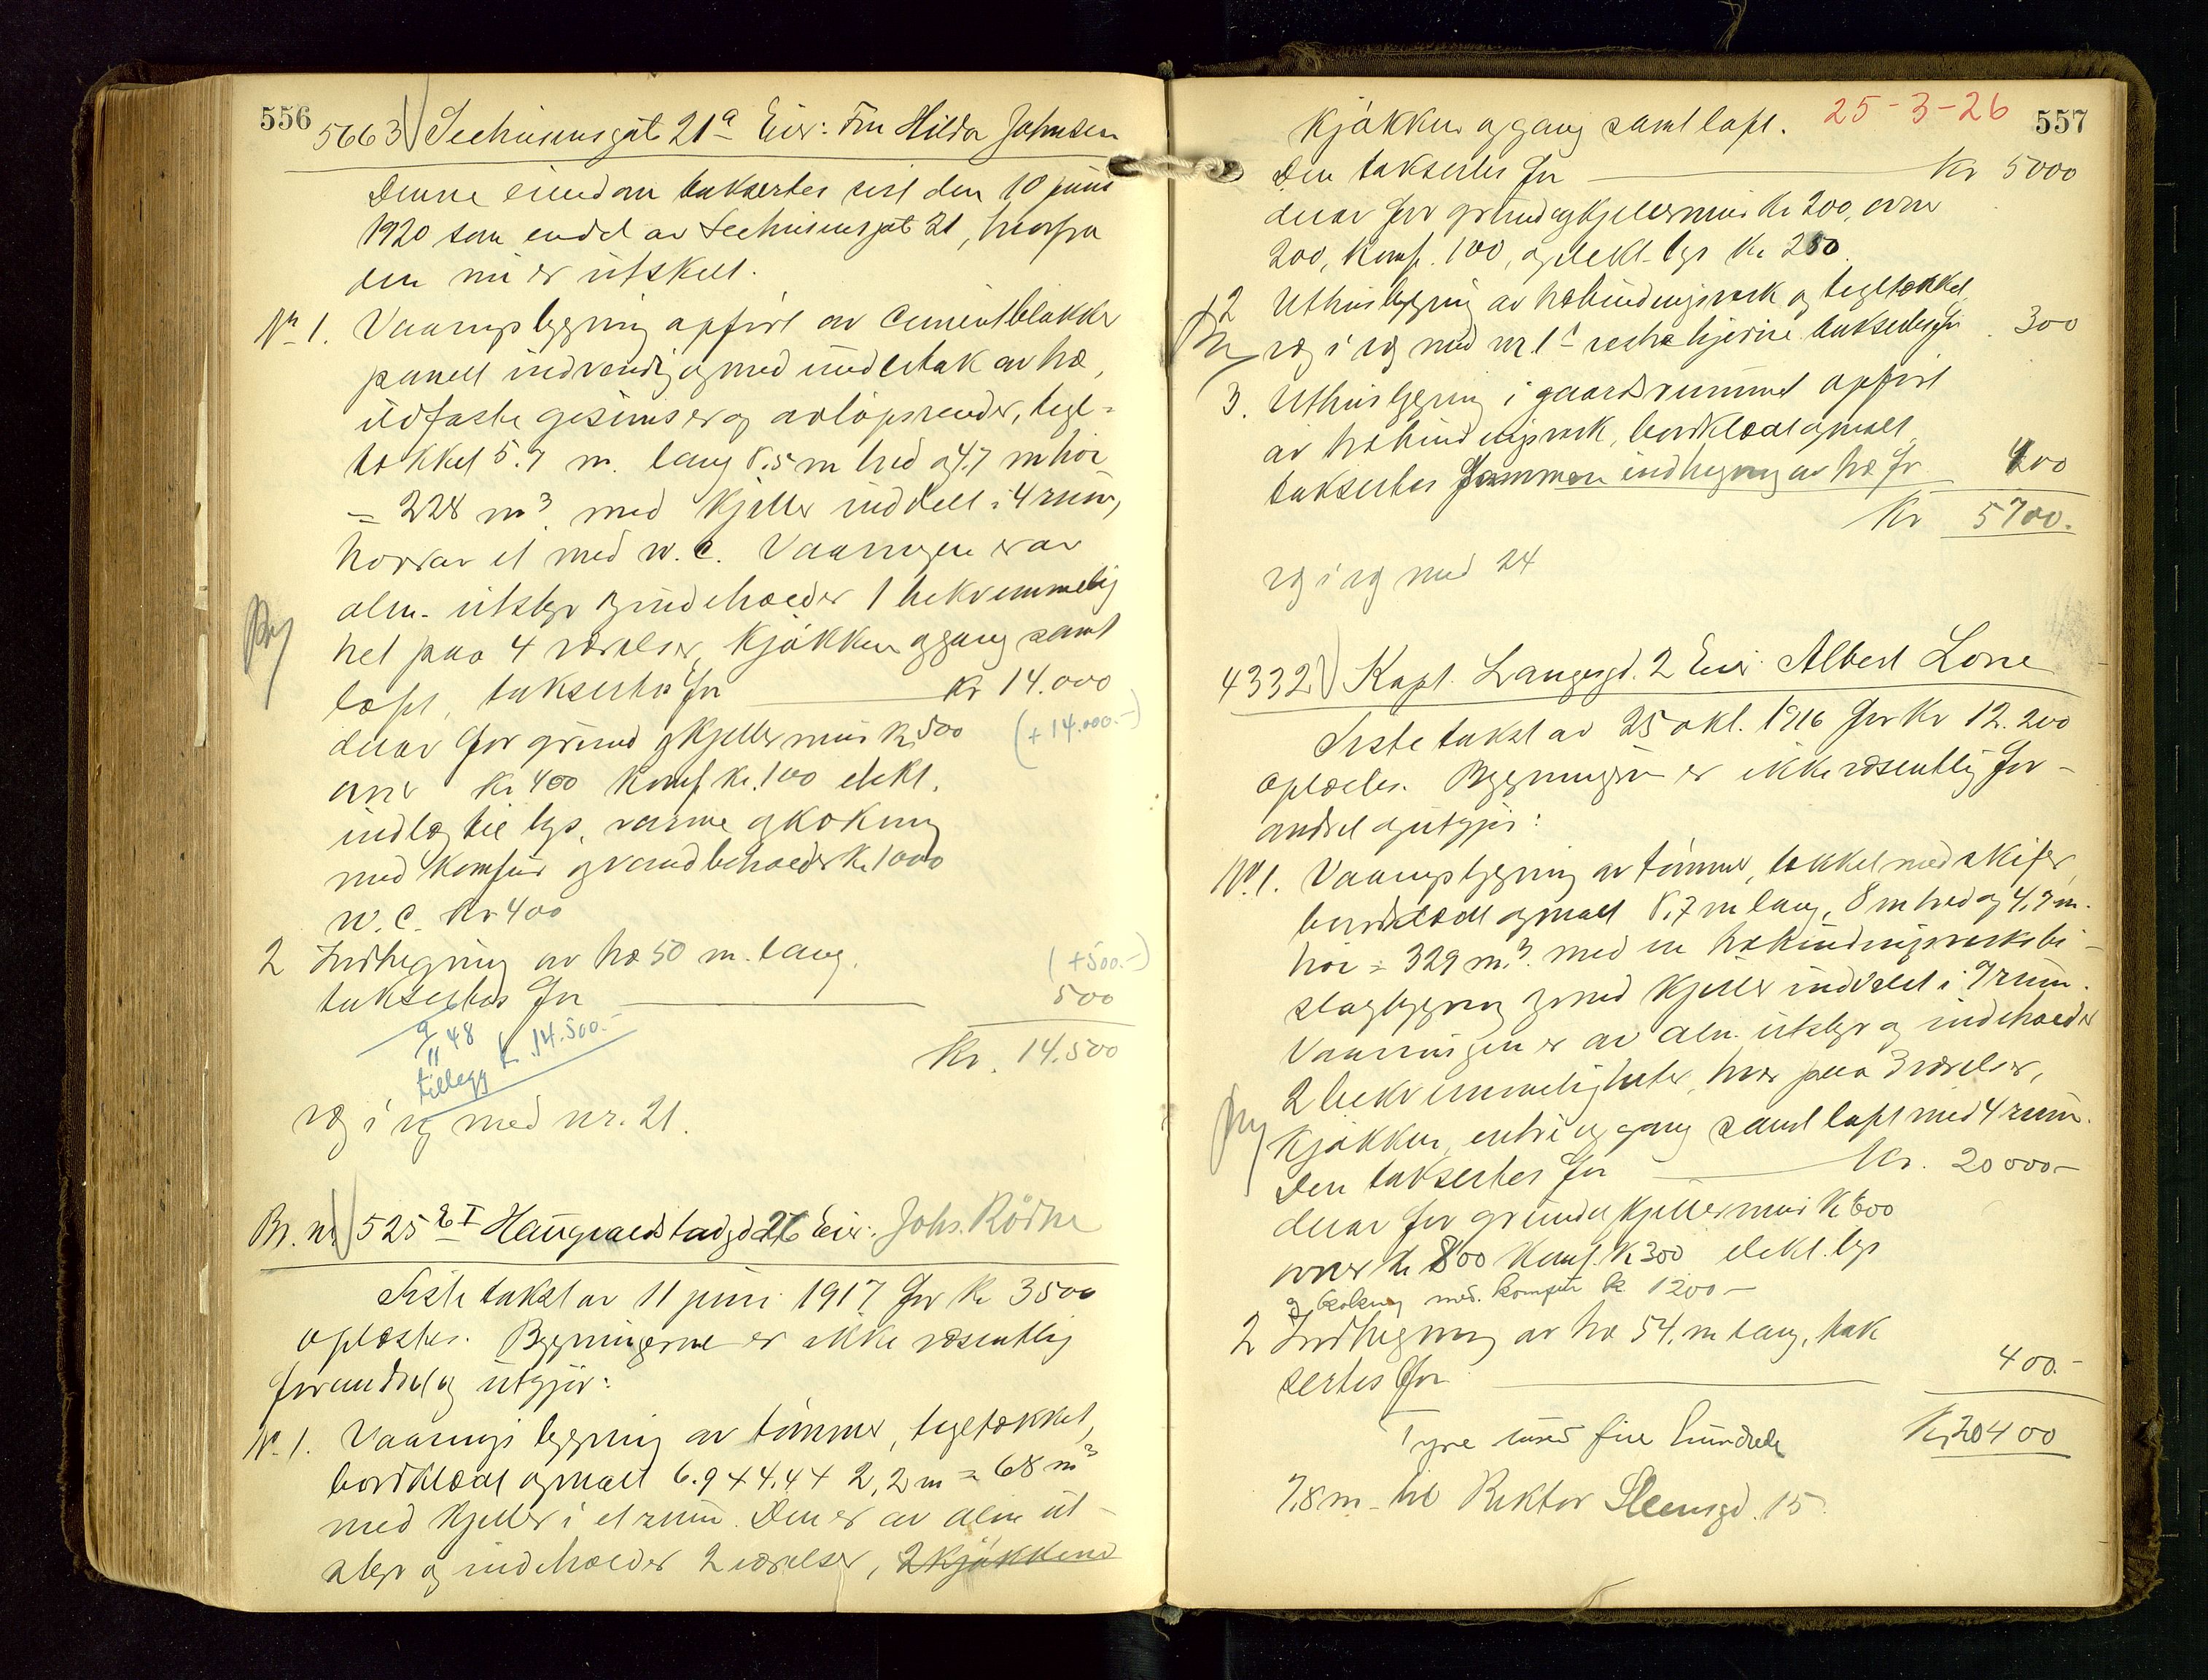 556
5663 Seehusensgat 21a Eier: Fru Hilda Johnsen
Denne eiendom takseertes sist den 10 juni
1920 som endel av Seehusensgat 21, hvorfra
den nu er utskilt.
No 1. Vaaningsbygning opført av cementblokker
panelt indvendig og med undertak av træ,
ildfaste gesimser og avløpsrender, tegl-
tækket 5.7 m. lang 8.5 m bred og 4.7 m høi
= 228 m3. med kjeller inddelt i 4 rum,
hvorav et med w.c. Vaaningen er av
alm. utstyr og indeholder 1 bekvemmelig
het paa 4 værelser, kjøkken og gang samt
loft, takseertes for kr 14.000
derav for grund og kjellermur kr. 500 (+14.000.-)
ovner kr 400 komf kr. 100 elekt.
indlæg til lys, varme og kokning
med komfur og vandbeholder kr 1000
w.c. kr 400
2 Indhegning av træ 50 m. lang. (+500.-)
takseertes for 500
Kr. 14.500
9/11 48
tillegg kr. 14.500.-
væg i væg med nr. 21.
Br. nr. 525 b I Haugvaldstadgd 26 Eier: Johs. Rödne
Siste takst av 11 juni 1917 for kr 3500
oplæstes. Bygningerne er ikke væsentlig
forandret og utgjør:
No 1. Vaaningsbygning av tømmer, tegltækket,
bordklædt og malt 6.9 x 4.4 x 2,2 m = 68 m3
med kjeller i et rum. Den er av alm ut-
styr og indeholder 2 værelser, 2 kjøkkener
kjøkken og gang samt loft. 25-3-26 557
Den takseertes for Kr 5000
derav for grund og kjellermur kr 200, ovner
200, komf. 100, og elekt. lys kr 250.
2 Uthusbygning av træbindingsverk og tegltækket
væg i væg med nr 1s vestre hjørne takseertes for 300
3. Uthusbygning i gaardsrummet opført
av træbindingsverk, bordklædt og malt
takseertes sammen indhegning av træ for 400
Kr 5700.
væg i væg med 24
4332 Kapt. Langesgd. 2 Eier Albert Lone
Siste takst av 25 okt. 1916 for Kr 12.200
oplæstes. Bygningen er ikke væsentlig for-
andret og utgjør:
No 1. Vaaningsbygning av tømmer, tækket med skifer,
bordklædt og malt 8.7 m lang, 8 m bred og 4,7 m.
høi = 329 m3. med en træbindingsverks bi-
slagbygning og med kjeller inddelt i 7 rum.
Vaaningen er av alm. utstyr og indeholder
2 bekvemmeligheter, hver paa 3 værelser,
kjøkken, entre og gang samt loft med 4 rum.
Den takseertes for Kr. 20000-
derav for grund og kjellermur kr 600
ovner kr 800 komf. kr 300 elekt. lys
og kokning med komfur kr 1200-
2 Indhegning av træ 54. m lang, tak
sertes for 400.-
Tyve tusen fire hundrede Kr 20400
7.8 m. til Rektor Steensgd. 15